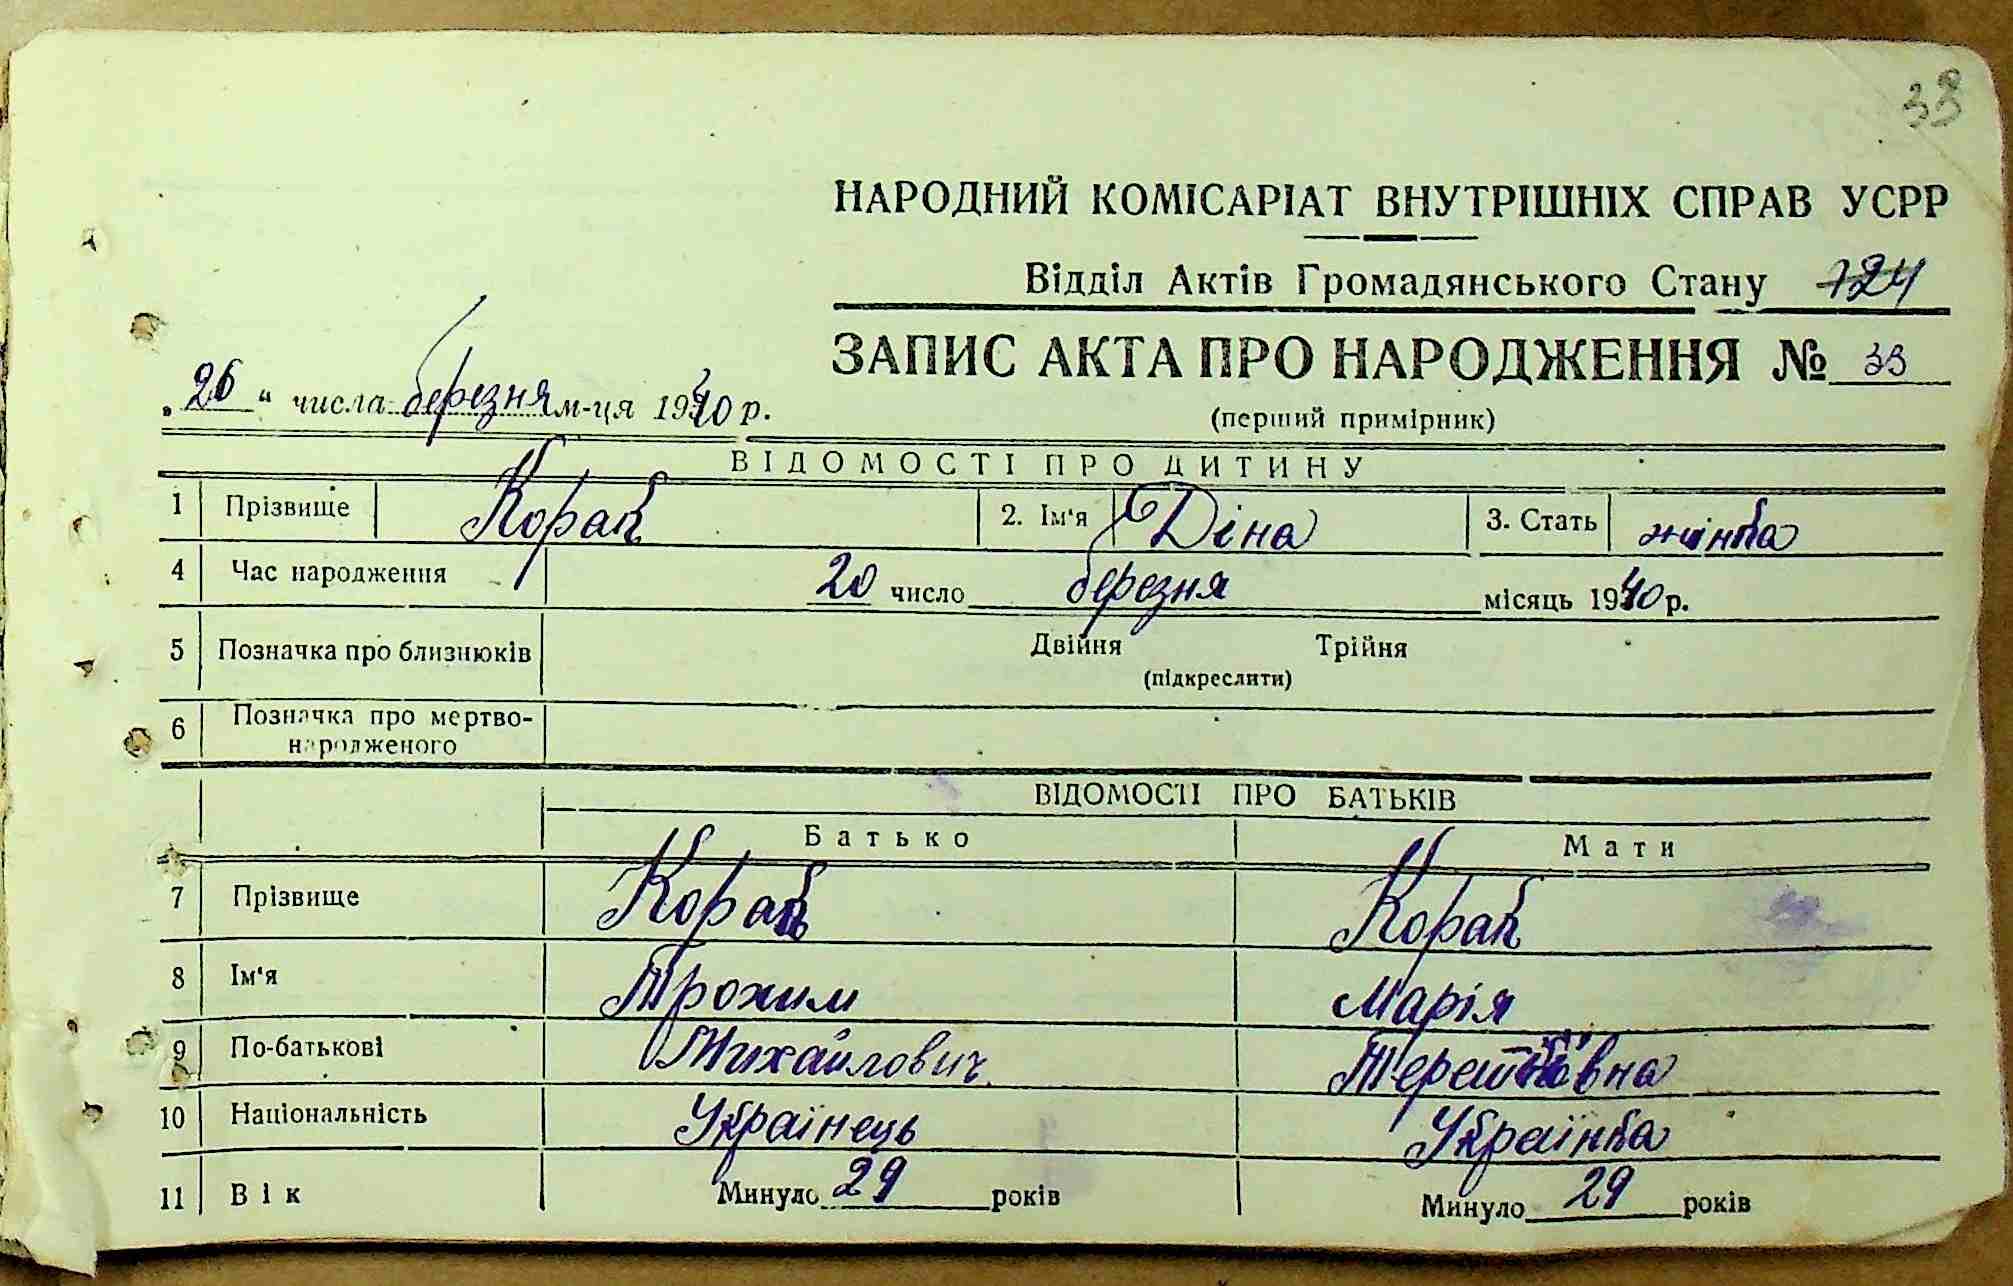 33
НАРОДНИЙ КОМІСАРІАТ ВНУТРІШНІХ СПРАВ УСРР
Відділ Актів Громадянського Стану 724
ЗАПИС АКТА ПРО НАРОДЖЕННЯ № 33
„26“ числа березня м-ця 1940 р.
(перший примірник)
ВІДОМОСТІ ПРО ДИТИНУ
1 Прізвище Корак 2. Ім'я Діна 3. Стать жінка
4 Час народження 20 число березня місяць 1940 р.
5 Позначка про близнюків Двійня Трійня
(підкреслити)
6 Позначка про мертво-
народженого
ВІДОМОСТІ ПРО БАТЬКІВ
Батько Мати
7 Прізвище Корак Корак
8 Ім'я Трохим Марія
9 По-батькові Михайлович
10 Національність Українець Українка
11 Вік Минуло 29 років Минуло 29 років